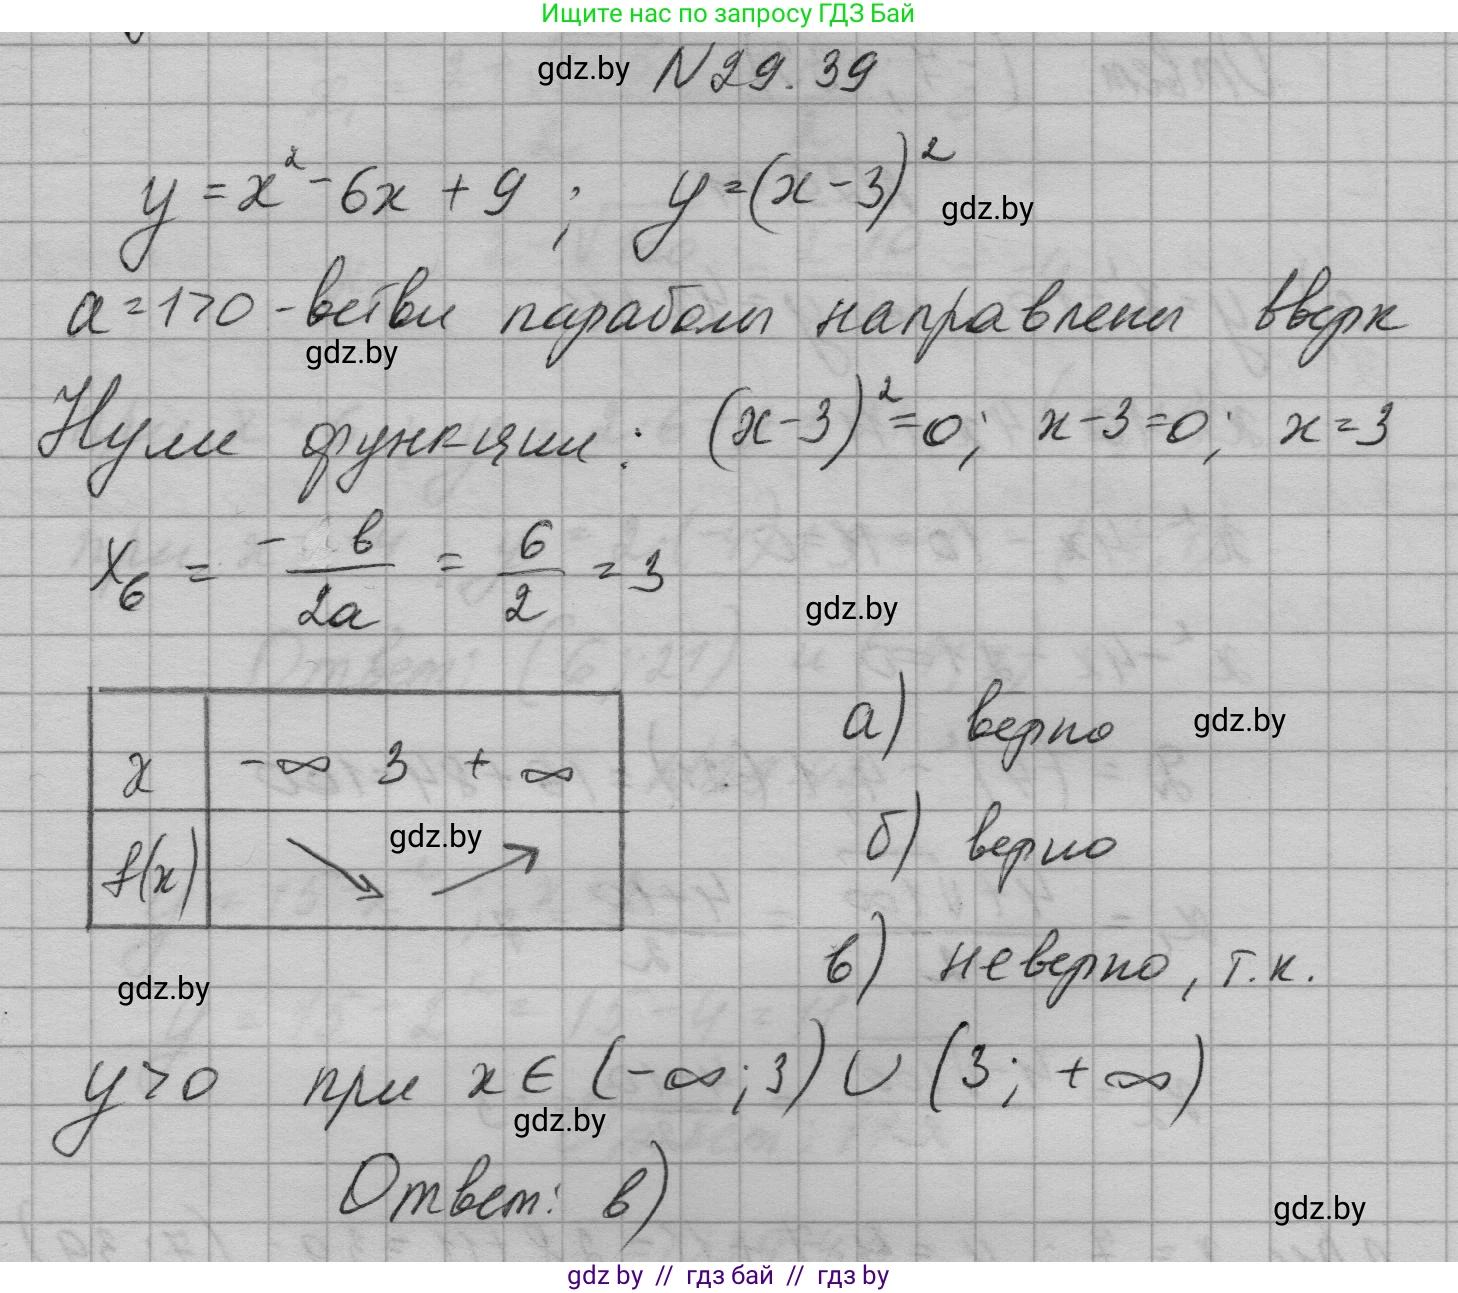 Ищите нас по запросу ГДЗ Бай
gdz.by N 29.39
y = x² - 6x + 9 ; y = (x - 3)²
gdz.by
a = 1 > 0 - ветви параболы направлены вверх
gdz.by
Нули функции: (x - 3)² = 0; x - 3 = 0; x = 3
x в = - в / 2a = 6 / 2 = 3
gdz.by
а) верно gdz.by
x -∞ 3 +∞
б) верно
f(x) gdz.by
в) неверно, т.к.
gdz.by
y > 0 при x ∈ (-∞; 3) ∪ (3; +∞)
gdz.by
Ответ: в)
gdz.by
gdz by // гдз бай // гдз by